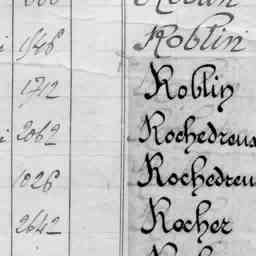 1548 Roblin
1712 Robliņ
2062 Rochedreus
1026 Rochedreu
2642 Rocher